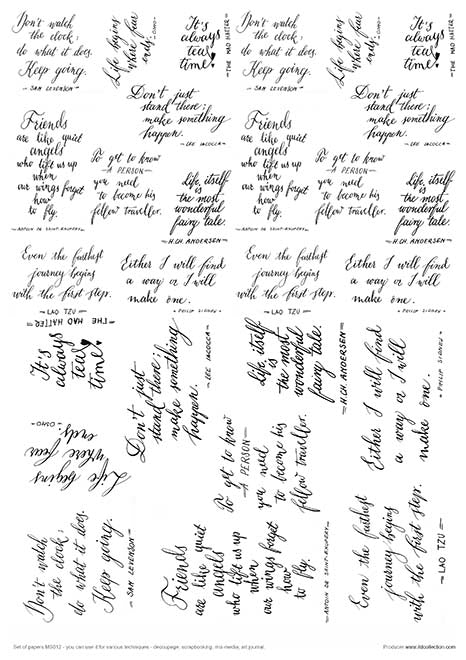 Don't watch
the clock;
do what it does.
Keep going.
- SAM LEVENSON -
Life begins
where fear
ends.
- OSHO -
It's
always
tea
time!
- THE MAD HATTER -
Don't watch
the clock;
do what it does.
Keep going.
- SAM LEVENSON -
Life begins
where fear
ends.
- OSHO -
It's
always
tea
time!
- THE MAD HATTER -
Don't just
stand there;
make something
happen.
- LEE IACOCCA -
Don't just
stand there;
make something
happen.
- LEE IACOCCA -
Friends
are like quiet
angels
who lift us up
when
our wings forget
how
to fly.
- ANTOIN DE SAINT-EXUPERY -
To get to know
- A PERSON -
you need
to become his
fellow traveller.
Life, itself
is
the most
wonderful
fairy tale.
- H.CH. ANDERSEN -
Friends
are like quiet
angels
who lift us up
when
our wings forget
how
to fly.
- ANTOIN DE SAINT-EXUPERY -
To get to know
- A PERSON -
you need
to become his
fellow traveller.
Life, itself
is
the most
wonderful
fairy tale.
- H.CH. ANDERSEN -
Even the furthest
journey begins
with the first step.
- LAO TZU -
Either I will find
a way or I will
make one.
- PHILIP SIDNEY -
Even the furthest
journey begins
with the first step.
- LAO TZU -
Either I will find
a way or I will
make one.
- PHILIP SIDNEY -
- THE MAD HATTER -
It's
always
tea
time!
Don't just
stand there;
make something
happen.
- LEE IACOCCA -
Life, itself
is
the most
wonderful
fairy tale.
- H.CH. ANDERSEN -
Either I will find
a way or I will
make one.
- PHILIP SIDNEY -
Life begins
where fear
ends.
- OSHO -
To get to know
- A PERSON -
you need
to become his
fellow traveller.
Don't watch
the clock;
do what it does.
Keep going.
- SAM LEVENSON -
Friends
are like quiet
angels
who lift us up
when
our wings forget
how
to fly.
- ANTOIN DE SAINT-EXUPERY -
Even the furthest
journey begins
with the first step.
- LAO TZU -
Set of papers MS012 - you can use it for various techniques - decoupage, scrapbooking, mix-media, art journal.
Producer www.itdcollection.com